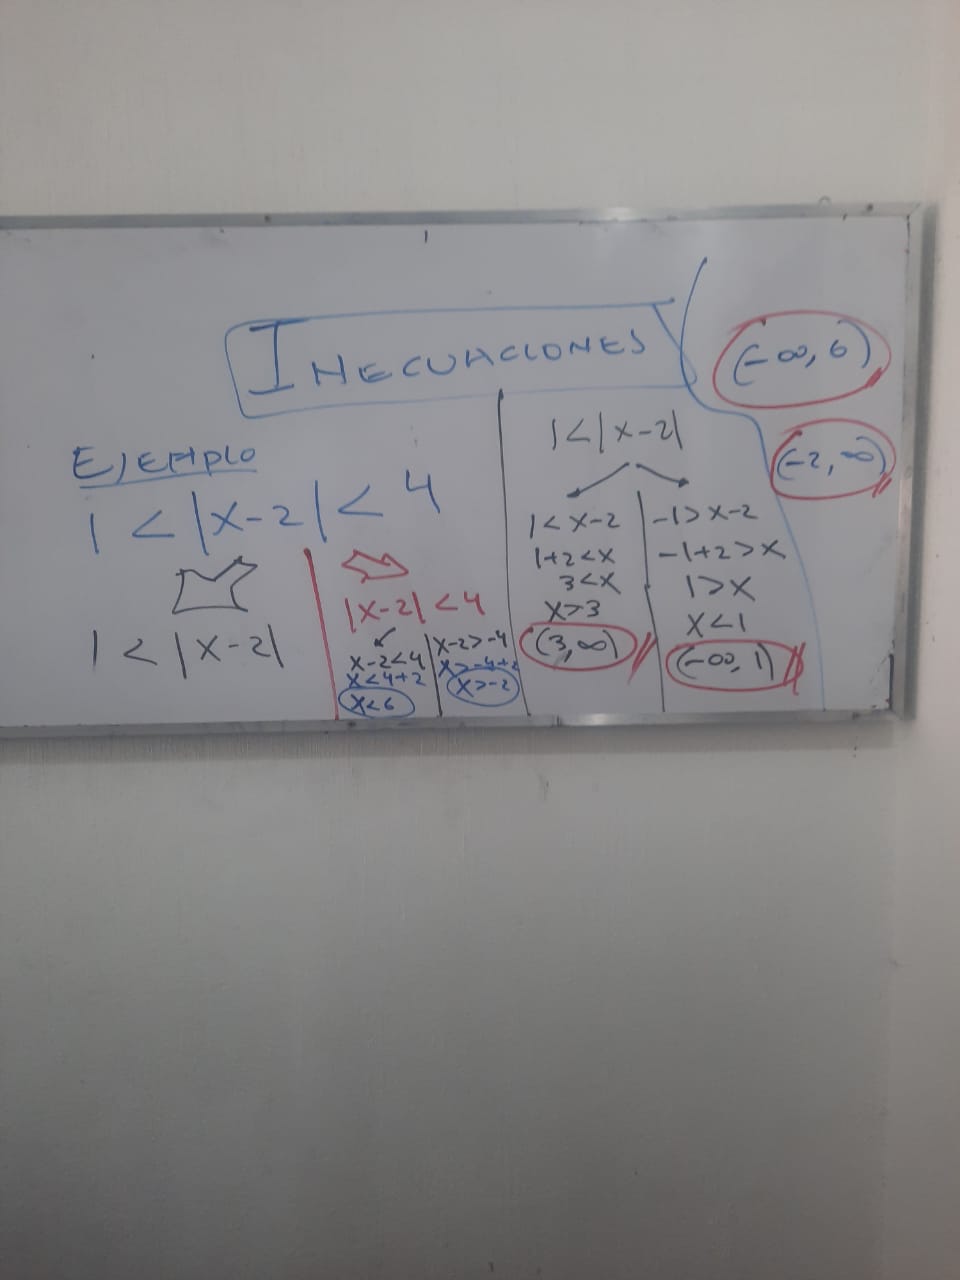 INECUACIONES
Ejemplo
1 < |x-2| < 4
1 < |x-2|
|x-2| < 4
x-2<4
x<4+2
x<6
x-2>-4
x>-4+2
x>-2
1<|x-2|
1<x-2
1+2<x
3<x
x>3
(3,∞)
-1>x-2
-1+2>x
1>x
x<1
(-∞,1)
(-∞,6)
(-2,∞)